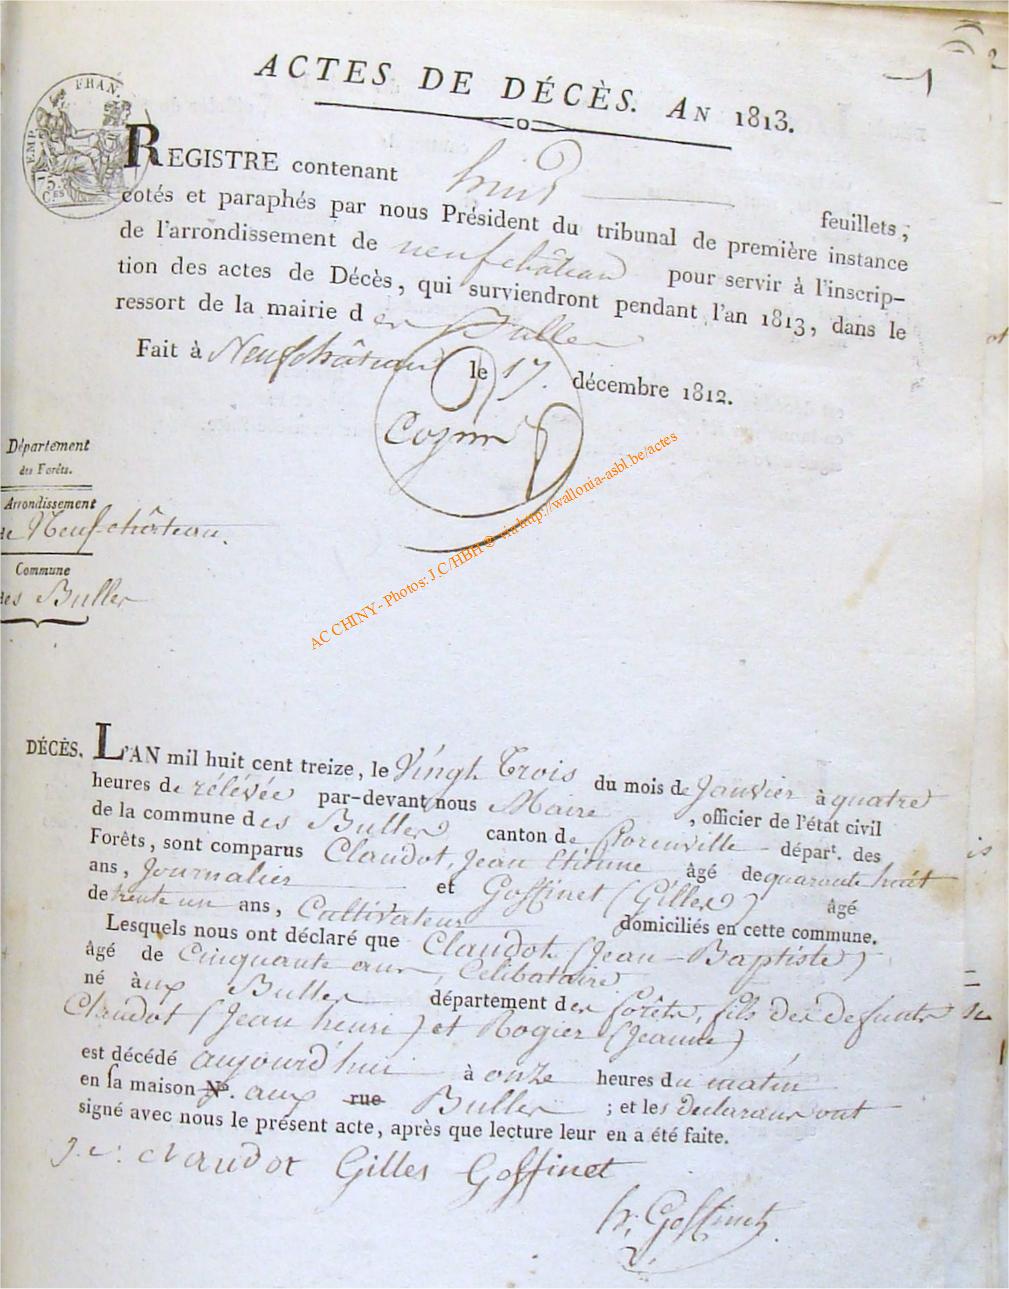 ACTES DE DÉCÈS. AN 1813.
FRAN.
TEMP.
REGISTRE contenant huit feuillets,
cotés et paraphés par nous Président du tribunal de première instance
de l'arrondissement de neufchâteau pour servir à l'inscrip-
tion des actes de Décès, qui surviendront pendant l'an 1813, dans le
ressort de la mairie des Buller
Fait à Neufchâteau le 17. décembre 1812.
Département
des Forêts.
Arrondissement
de Neufchâteau.
Commune
des Buller
AC CHINY - Photos: J.C/HBH © via http://wallonia-asbl.be/actes
DÉCÈS. L'AN mil huit cent treize, le Vingh Trois du mois de Janvier à quatre
heures de rélévée par-devant nous Maire, officier de l'état civil
de la commune des Buller canton de florenville départ. des
Forêts, sont comparus Claudot, Jean Etienne âgé de quarante huit
ans, Journalier et Goffinet (Gilles) âgé
de trente un ans, Cultivateur domiciliés en cette commune.
Lesquels nous ont déclaré que Claudot (Jean-Baptiste)
âgé de Cinquante ans, Célibataire
né àux Buller département des forêts, fils des defunts
Claudot (Jean henri) et Rogier (Jeanne)
est décédé aujourd'hui à onze heures du matin
en sa maison N°. aux rue Buller ; et les declarans ont
signé avec nous le présent acte, après que lecture leur en a été faite.
J. e. claudot Gilles Goffinet
h. Goffinet